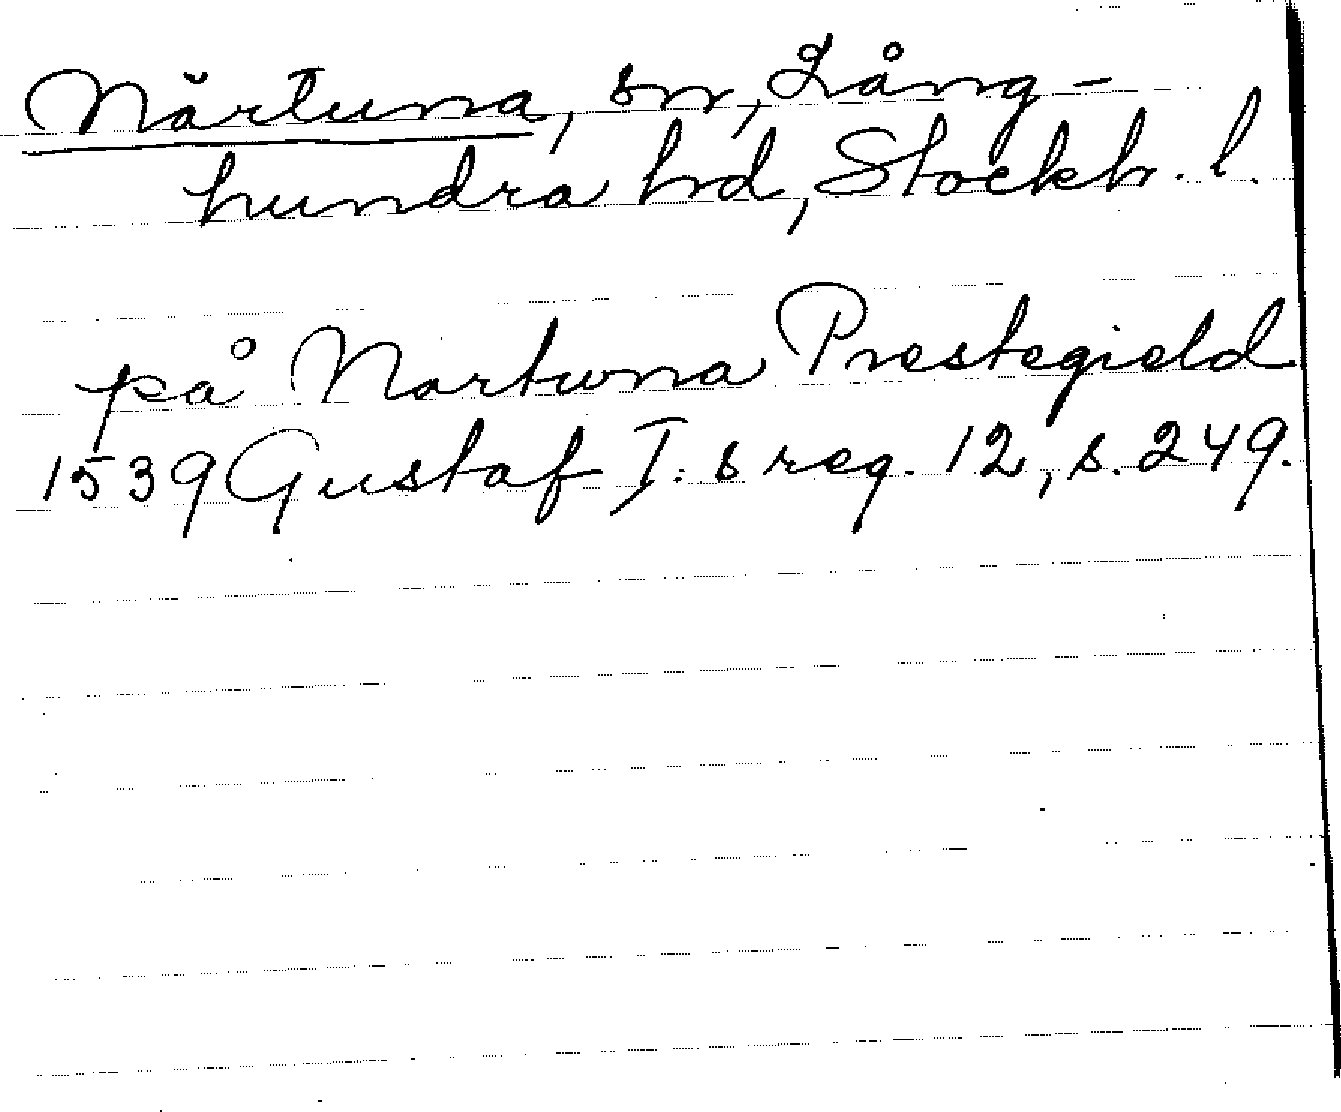 Närtuna, sn, Lång-
hundra hd, Stockh. l.
på Nartwna Prestegield
1539 Gustaf I:s reg. 12, s. 249.